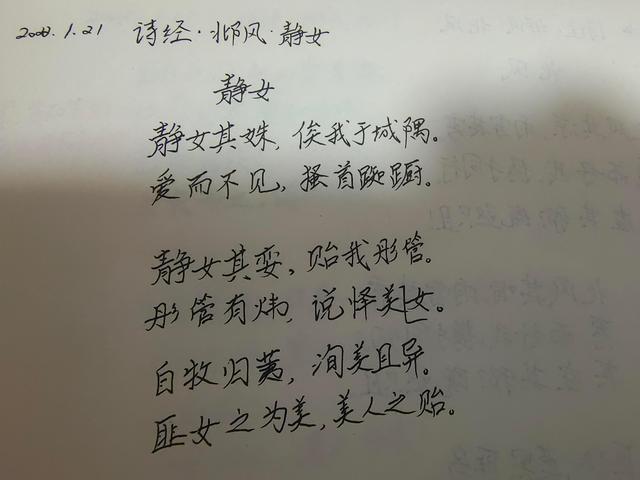 2020.1.21 诗经·邶风·静女
静女
静女其姝，俟我于城隅。
爱而不见，搔首踟蹰。
静女其娈，贻我彤管。
彤管有炜，说怿美女。
自牧归荑，洵美且异。
匪女之为美，美人之贻。